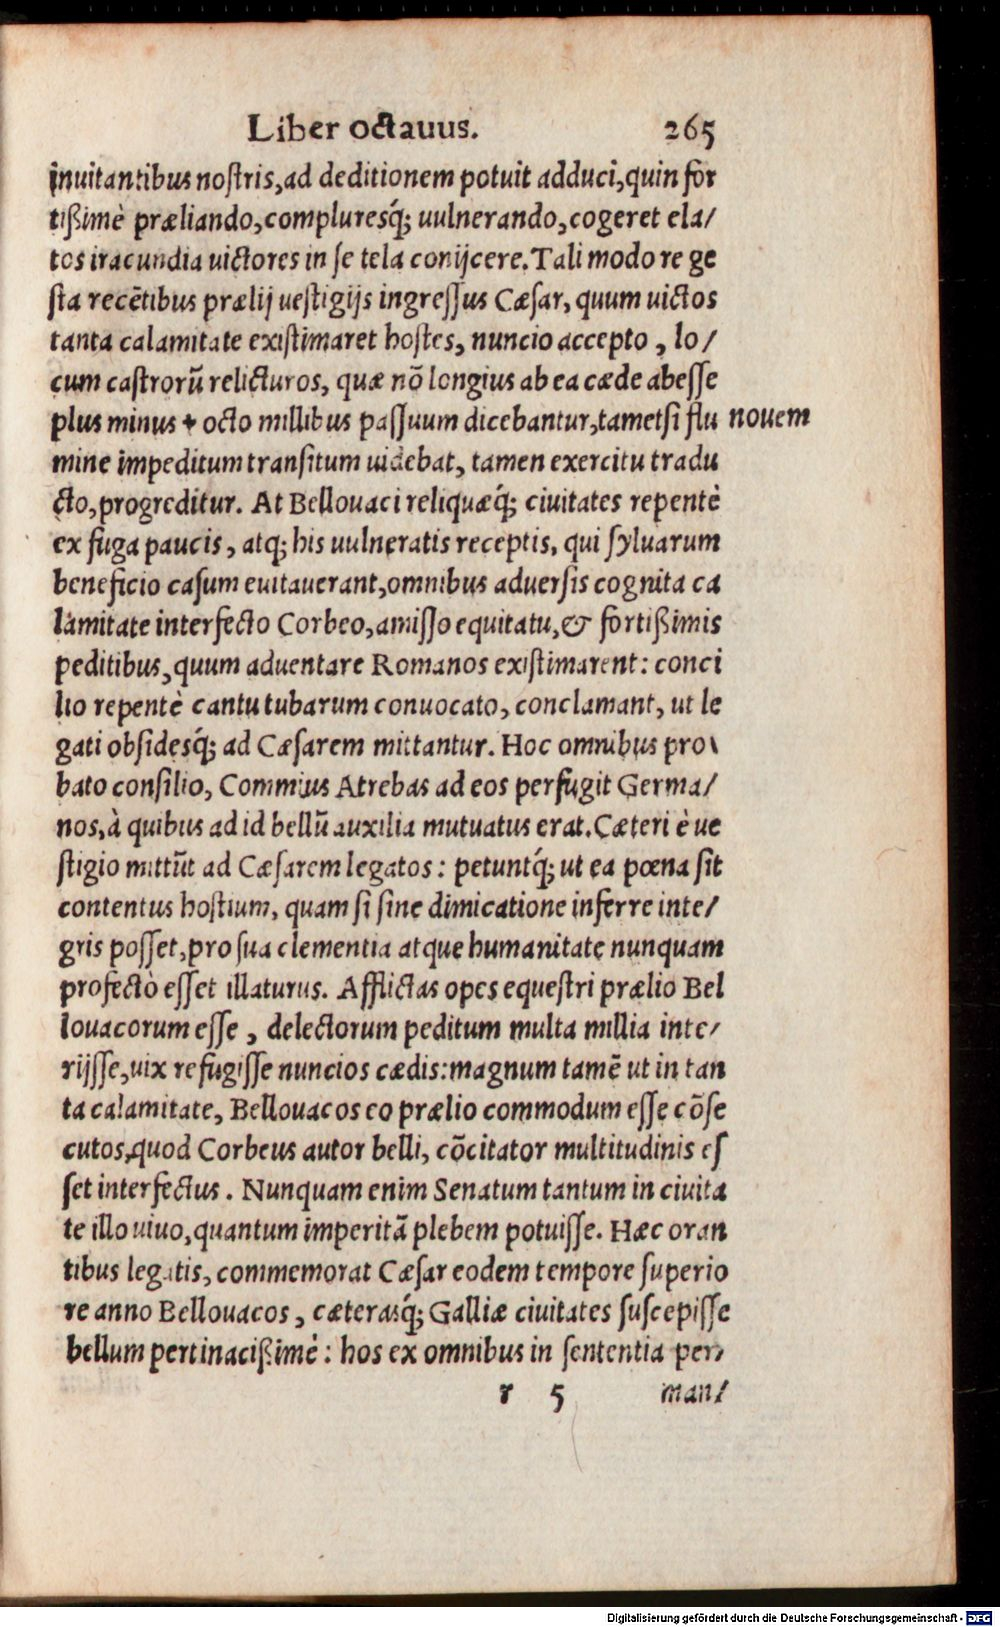 Liber octavus. 265
inuitantibus nostris, ad deditionem potuit adduci, quin for
tißimè præliando, compluresq́; uulnerando, cogeret ela/
tos iracundia uictores in se tela conijcere. Tali modo re ge
sta recētibus prælij uestigijs ingressus Cæsar, quum uictos
tanta calamitate existimaret hostes, nuncio accepto, lo/
cum castrorū relicturos, quæ nō longius ab ea cæde abesse
plus minus + octo millibus passuum dicebantur, tametsi flu novem
mine impeditum transitum uidebat, tamen exercitu tradu
cto, progreditur. At Bellouaci reliquæq́; ciuitates repentè
ex fuga paucis, atq; his uulneratis receptis, qui syluarum
beneficio casum euitauerant, omnibus aduersis cognita ca
lamitate interfecto Corbeo, amisso equitatu, & fortißimis
peditibus, quum aduentare Romanos existimarent: conci
lio repentè cantu tubarum conuocato, conclamant, ut le
gati obsidesq́; ad Cæsarem mittantur. Hoc omnibus pro\
bato consilio, Commius Atrebas ad eos perfugit Germa/
nos, à quibus ad id bellū auxilia mutuatus erat. Cæteri è ue
stigio mittūt ad Cæsarem legatos: petuntq́; ut ea pœna sit
contentus hostium, quam si sine dimicatione inferre inte/
gris posset, pro sua clementia atque humanitate nunquam
profectò esset illaturus. Afflictas opes equestri prælio Bel
louacorum esse, delectorum peditum multa millia inte/
rijsse, uix refugisse nuncios cædis: magnum tamē ut in tan
ta calamitate, Bellouacos eo prælio commodum esse cōse
cutos, quod Corbeus autor belli, cōcitator multitudinis es
set interfectus. Nunquam enim Senatum tantum in ciuita
te illo uiuo, quantum imperitā plebem potuisse. Hæc oran
tibus legatis, commemorat Cæsar eodem tempore superio
re anno Bellouacos, cæterasq́; Galliæ ciuitates suscepisse
bellum pertinacißimè: hos ex omnibus in sententia per/
r 5 man/
Digitalisierung gefördert durch die Deutsche Forschungsgemeinschaft - DFG